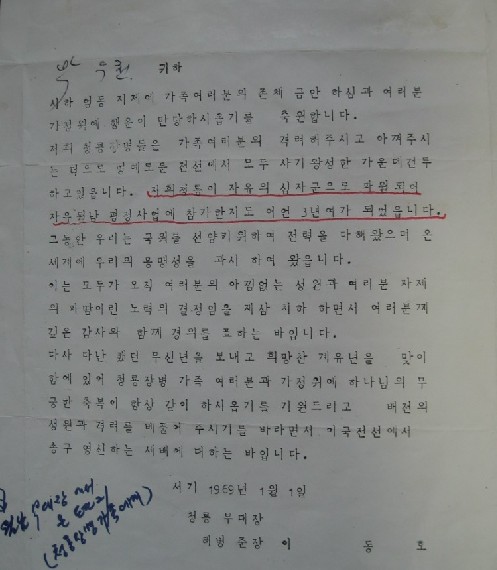 귀하
가정위에 행운이 만당하시옵기를 축원합니다.
저희 청룡장병들은 가족여러분의 격려해주시고 아껴주시
는 덕으로 전선에서 모두 사기왕성한 가운데 전투
하고있읍니다. 저희청룡이 자유의 십자군으로 파월되어
자유월남 평정사업에 참가한지도 어언 3년여가 되었읍니다.
그동안 우리는 국위를 선양키위하여 전력을 다해왔으며 온
세계에 우리의 용맹성을 과시 하여 왔읍니다.
이는 모두가 오직 여러분의 아낌없는 성원과 여러분 자제
의 노력의 결정임을 치하 하면서 여러분께
깊은 감사와 함께 경의를 표하는 바입니다.
다사 다난 했던 무신년을 보내고 희망찬 기유년을 맞이
함에 있어 청룡장병 가족 여러분과 가정위에 하나님의 무
궁한 축복이 항상 같이 하시옵기를 기원드리고 배전의
성원과 격려를 베풀어 주시기를 바라면서 이국전선에서
송구 영신하는 세배에 대하는 바입니다.
서기 1969년 1월 1일
청룡 부대장
해병 준장 이 동 호